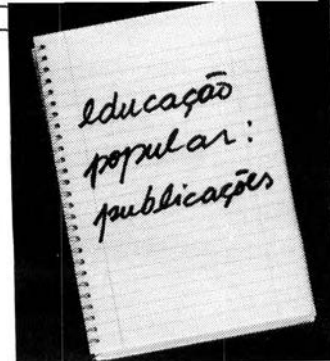 educação
popular:
publicações